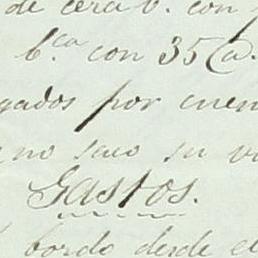 de cera b. con
b.ca con 35 @.
gados por cuen
no saco su va
Gastos.
bordo desde el